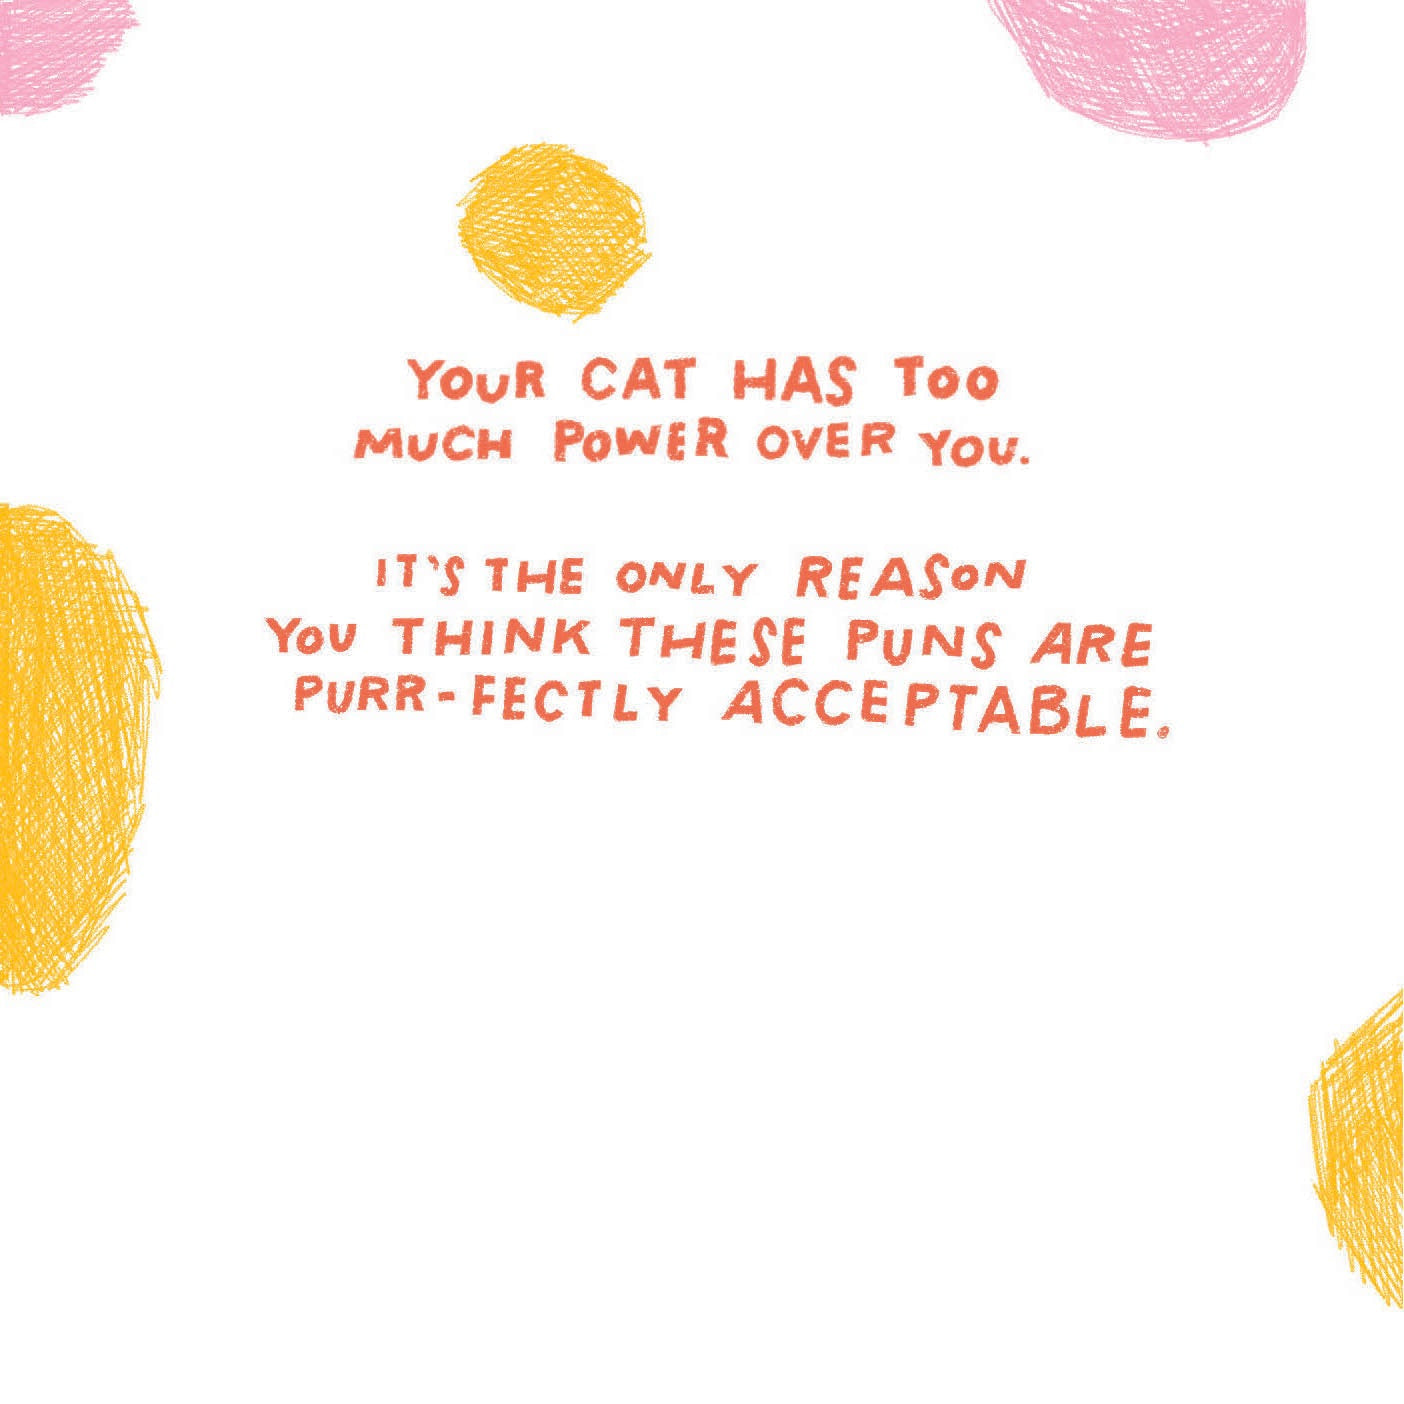 YOUR CAT HAS TOO
MUCH POWER OVER YOU.
IT'S THE ONLY REASON
YOU THINK THESE PUNS ARE
PURR-FECTLY ACCEPTABLE.